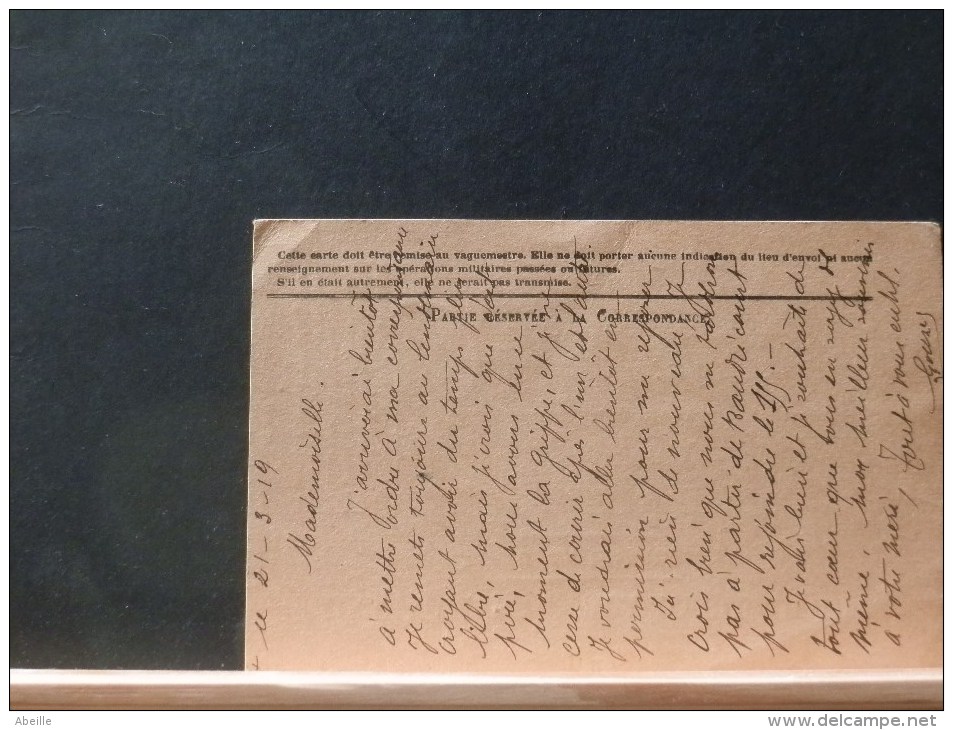 Cette carte doit être remise au vaguemestre. Elle ne doit porter aucune indication du lieu d'envoi ni aucun
renseignement sur les opérations militaires passées ou futures.
S'il en était autrement, elle ne serait pas transmise.
PARTIE RÉSERVÉE À LA CORRESPONDANCE
le 21-3-19
Mademoiselle.
J'arriverai bientôt
à mettre l'ordre à ma correspondance
Je remets toujours au lendemain
croyant avoir du temps plus
libre, mais je crois que c'est
pire, nous avons eu
moment la grippe, et je ne
cesse de courir après l'un et l'autre.
Je voudrais aller bientôt en
permission pour me reposer
Ici rien de nouveau. Je
crois bien que nous ne tarderons
pas à partir de Baudricourt
pour rejoindre le
Je vais bien et je souhaite de
tout cœur que vous en soyez de
même, mon meilleur souvenir
à votre mère, Tout à vous
Abeille
www.delcampe.net